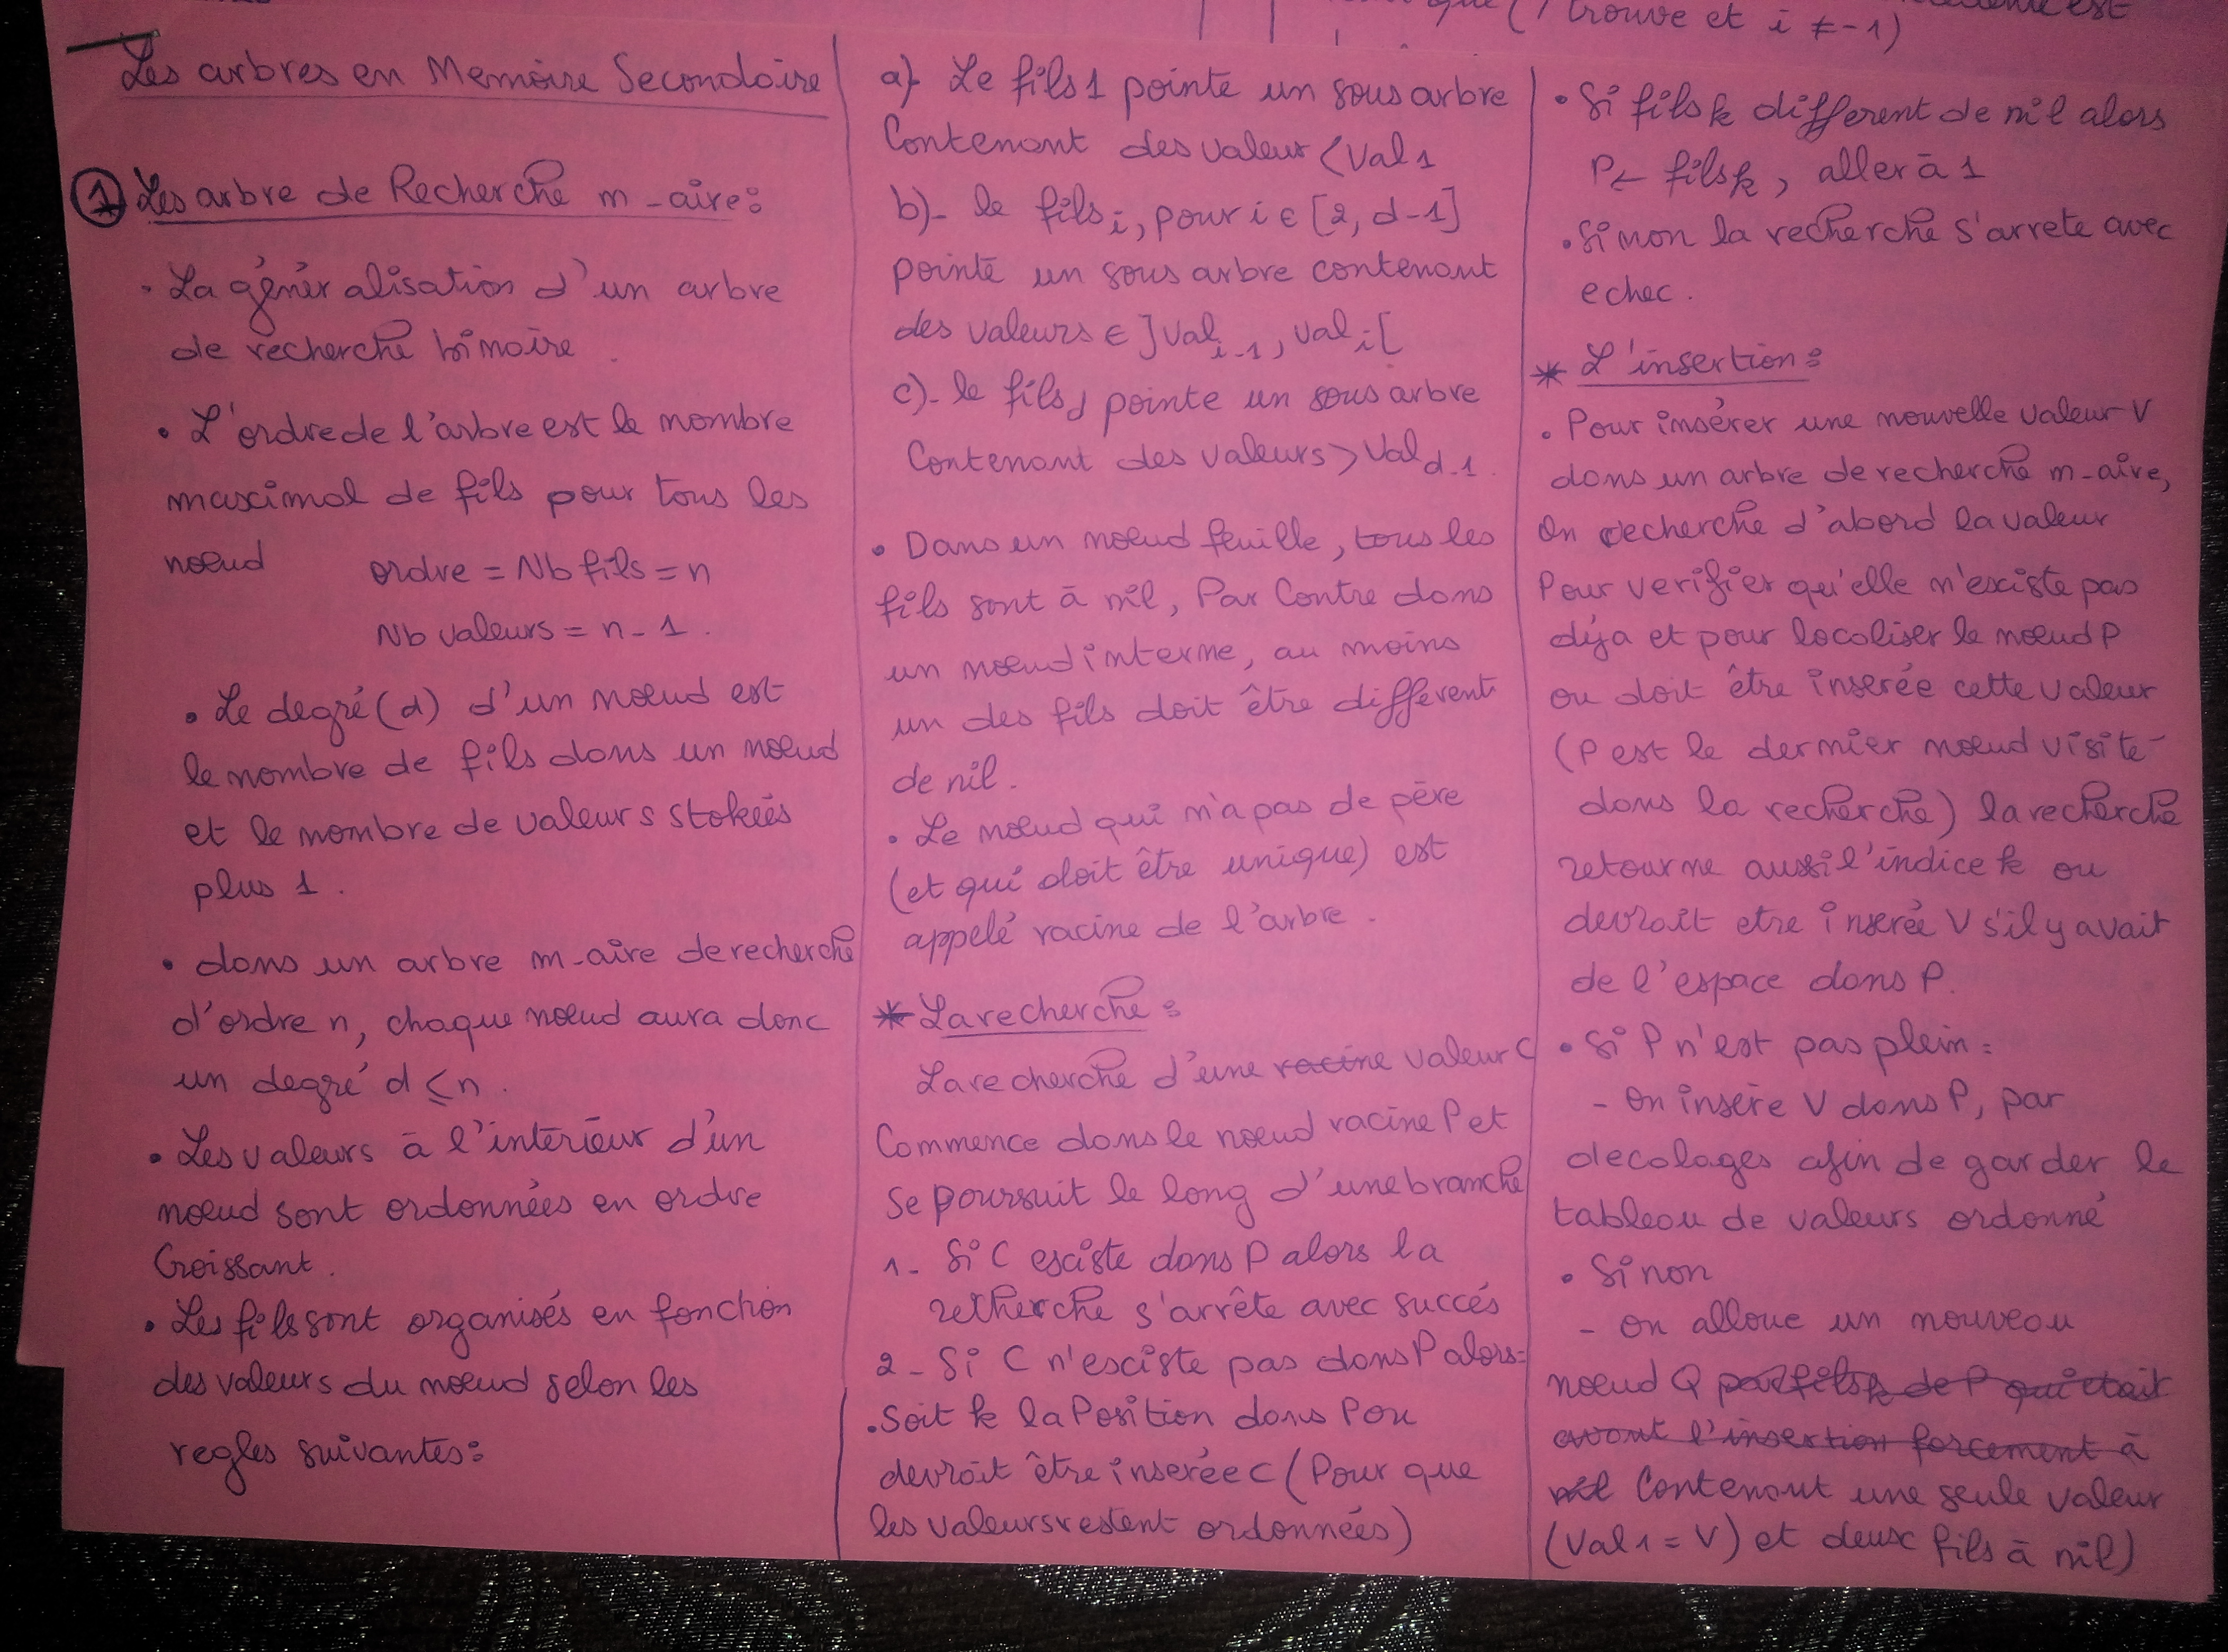 trouve et i ≠ -1)
Les arbres en Memoire Secondaire
1 Les arbre de Recherche m-aire:
. La génér alisation d'un arbre
de recherche binaire.
• L'ordre de l'arbre est le nombre
maximal de fils pour tous les
nœud ordre = Nb fils = n
Nb valeurs = n-1.
• Le degré (d) d'un nœud est
le nombre de fils dans un nœud
et le nombre de valeurs stokées
plus 1.
• dans un arbre m-aire de recherche
d'ordre n, chaque nœud aura donc
un degré d ≤ n.
• Les valeurs à l'intérieur d'un
nœud sont ordonnées en ordre
Croissant.
• Les fils sont organisés en fonction
des valeurs du nœud selon les
regles suivantes:
a)- Le fils 1 pointe un sous arbre
Contenant des valeur < Val 1
b)- le fils i, pour i ∈ [2, d-1]
pointe un sous arbre contenant
des valeurs ∈ ]val i-1, val i[
c)- le fils d pointe un sous arbre
Contenant des valeurs > Val d-1.
• Dans un nœud feuille, tous les
fils sont à nil, Par Contre dans
un nœud interne, au moins
un des fils doit être différent
de nil.
• Le nœud qui n'a pas de père
(et qui doit être unique) est
appelé racine de l'arbre.
* La recherche:
La recherche d'une racine valeur C
Commence dans le nœud racine P et
se poursuit le long d'une branche
1- Si C existe dans P alors la
recherche s'arrête avec succés
2- Si C n'existe pas dans P alors:
. Soit k la Position dans P ou
devrait être inserée c (Pour que
les valeurs restent ordonnées)
• Si fils k different de nil alors
P ← fils k, aller à 1
• Sinon la recherche s'arrete avec
echec.
* L'insertion:
• Pour insérer une nouvelle valeur V
dans un arbre de recherche m-aire,
On recherche d'abord la valeur
Pour verifier qu'elle n'existe pas
déja et pour localiser le nœud P
ou doit être inserée cette valeur
(P est le dernier nœud visité
dans la recherche) la recherche
retourne aussi l'indice k ou
devrait etre inserée V s'il y avait
de l'espace dans P.
• Si P n'est pas plein:
- On insère V dans P, par
decalages afin de garder le
tableau de valeurs ordonné
• Sinon
- On alloue un nouveau
nœud Q par fils k de P qui etait
avant l'insertion forcement à
nil Contenant une seule valeur
(Val 1 = V) et deux fils à nil)